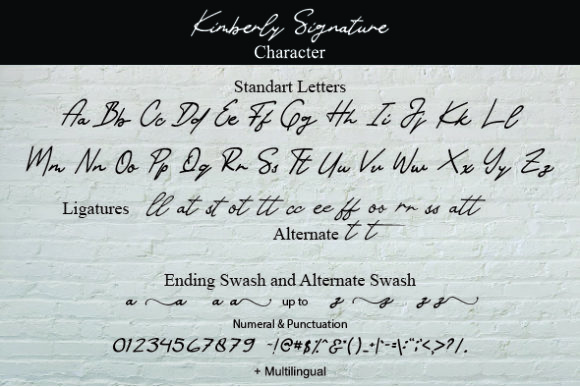 Kimberly Signature
Character
Standart Letters
Aa Bb Cc Dd Ee Ff Gg Hh Ii Jj Kk Ll
Mm Nn Oo Pp Qq Rr Ss Tt Uu Vv Ww Xx Yy Zz
Ligatures ll at st ot tt cc ee ff oo rr ss att
Alternate t t
Ending Swash and Alternate Swash
a a a a up to z z z z
Numeral & Punctuation
01234567879 -!@#$%^&*()_+|`-=\:";'<,>?/.
+ Multilingual